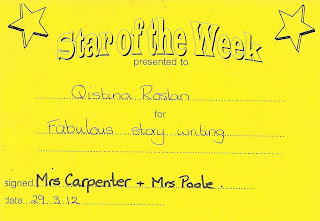 Star of the Week
presented to
Qistina Roslan
for
Fabulous story writing
signed Mrs Carpenter + Mrs Poole.
date 29.3.12